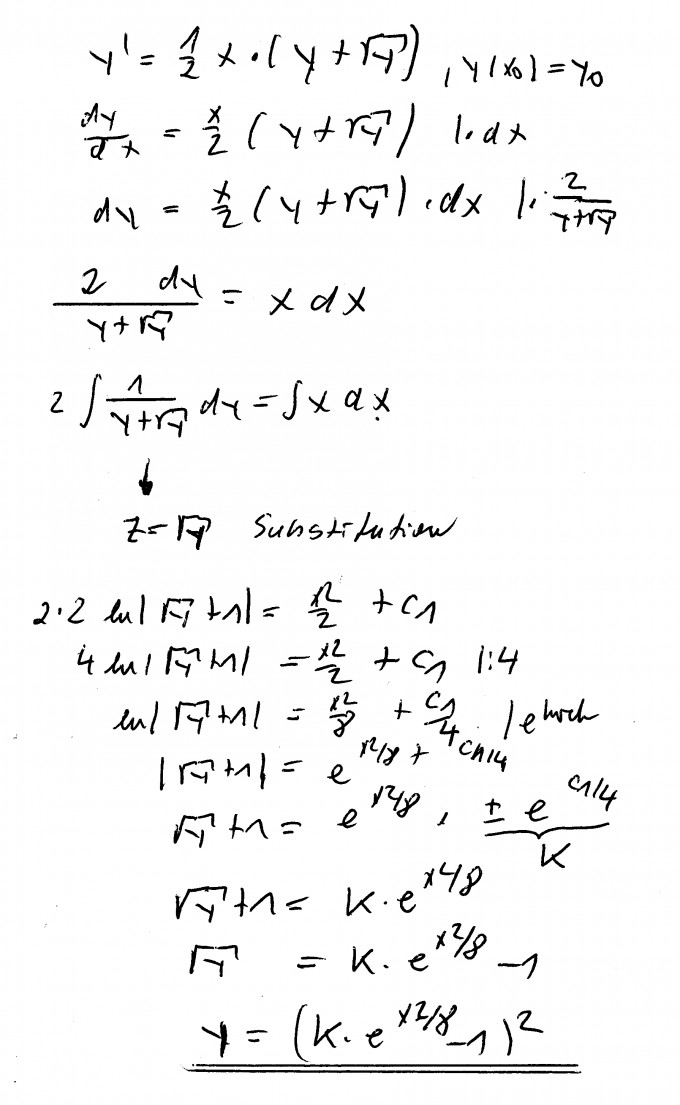 y' = 1/2 x · (y + √y) , y(x0) = y0
dy/dx = x/2 (y + √y) | · dx
dy = x/2 (y + √y) · dx | · 2/(y+√y)
2 dy/(y+√y) = x dx
2 ∫ 1/(y+√y) dy = ∫ x dx
↓
z = √y Substitution
2·2 ln|√y + 1| = x²/2 + C1
4 ln|√y + 1| = x²/2 + C1 | :4
ln|√y + 1| = x²/8 + C1/4 | e hoch
|√y + 1| = e^(x²/8 + C1/4)
√y + 1 = e^(x²/8) · ± e^(C1/4)
K
√y + 1 = K · e^(x²/8)
√y = K · e^(x²/8) - 1
y = (K · e^(x²/8) - 1)²